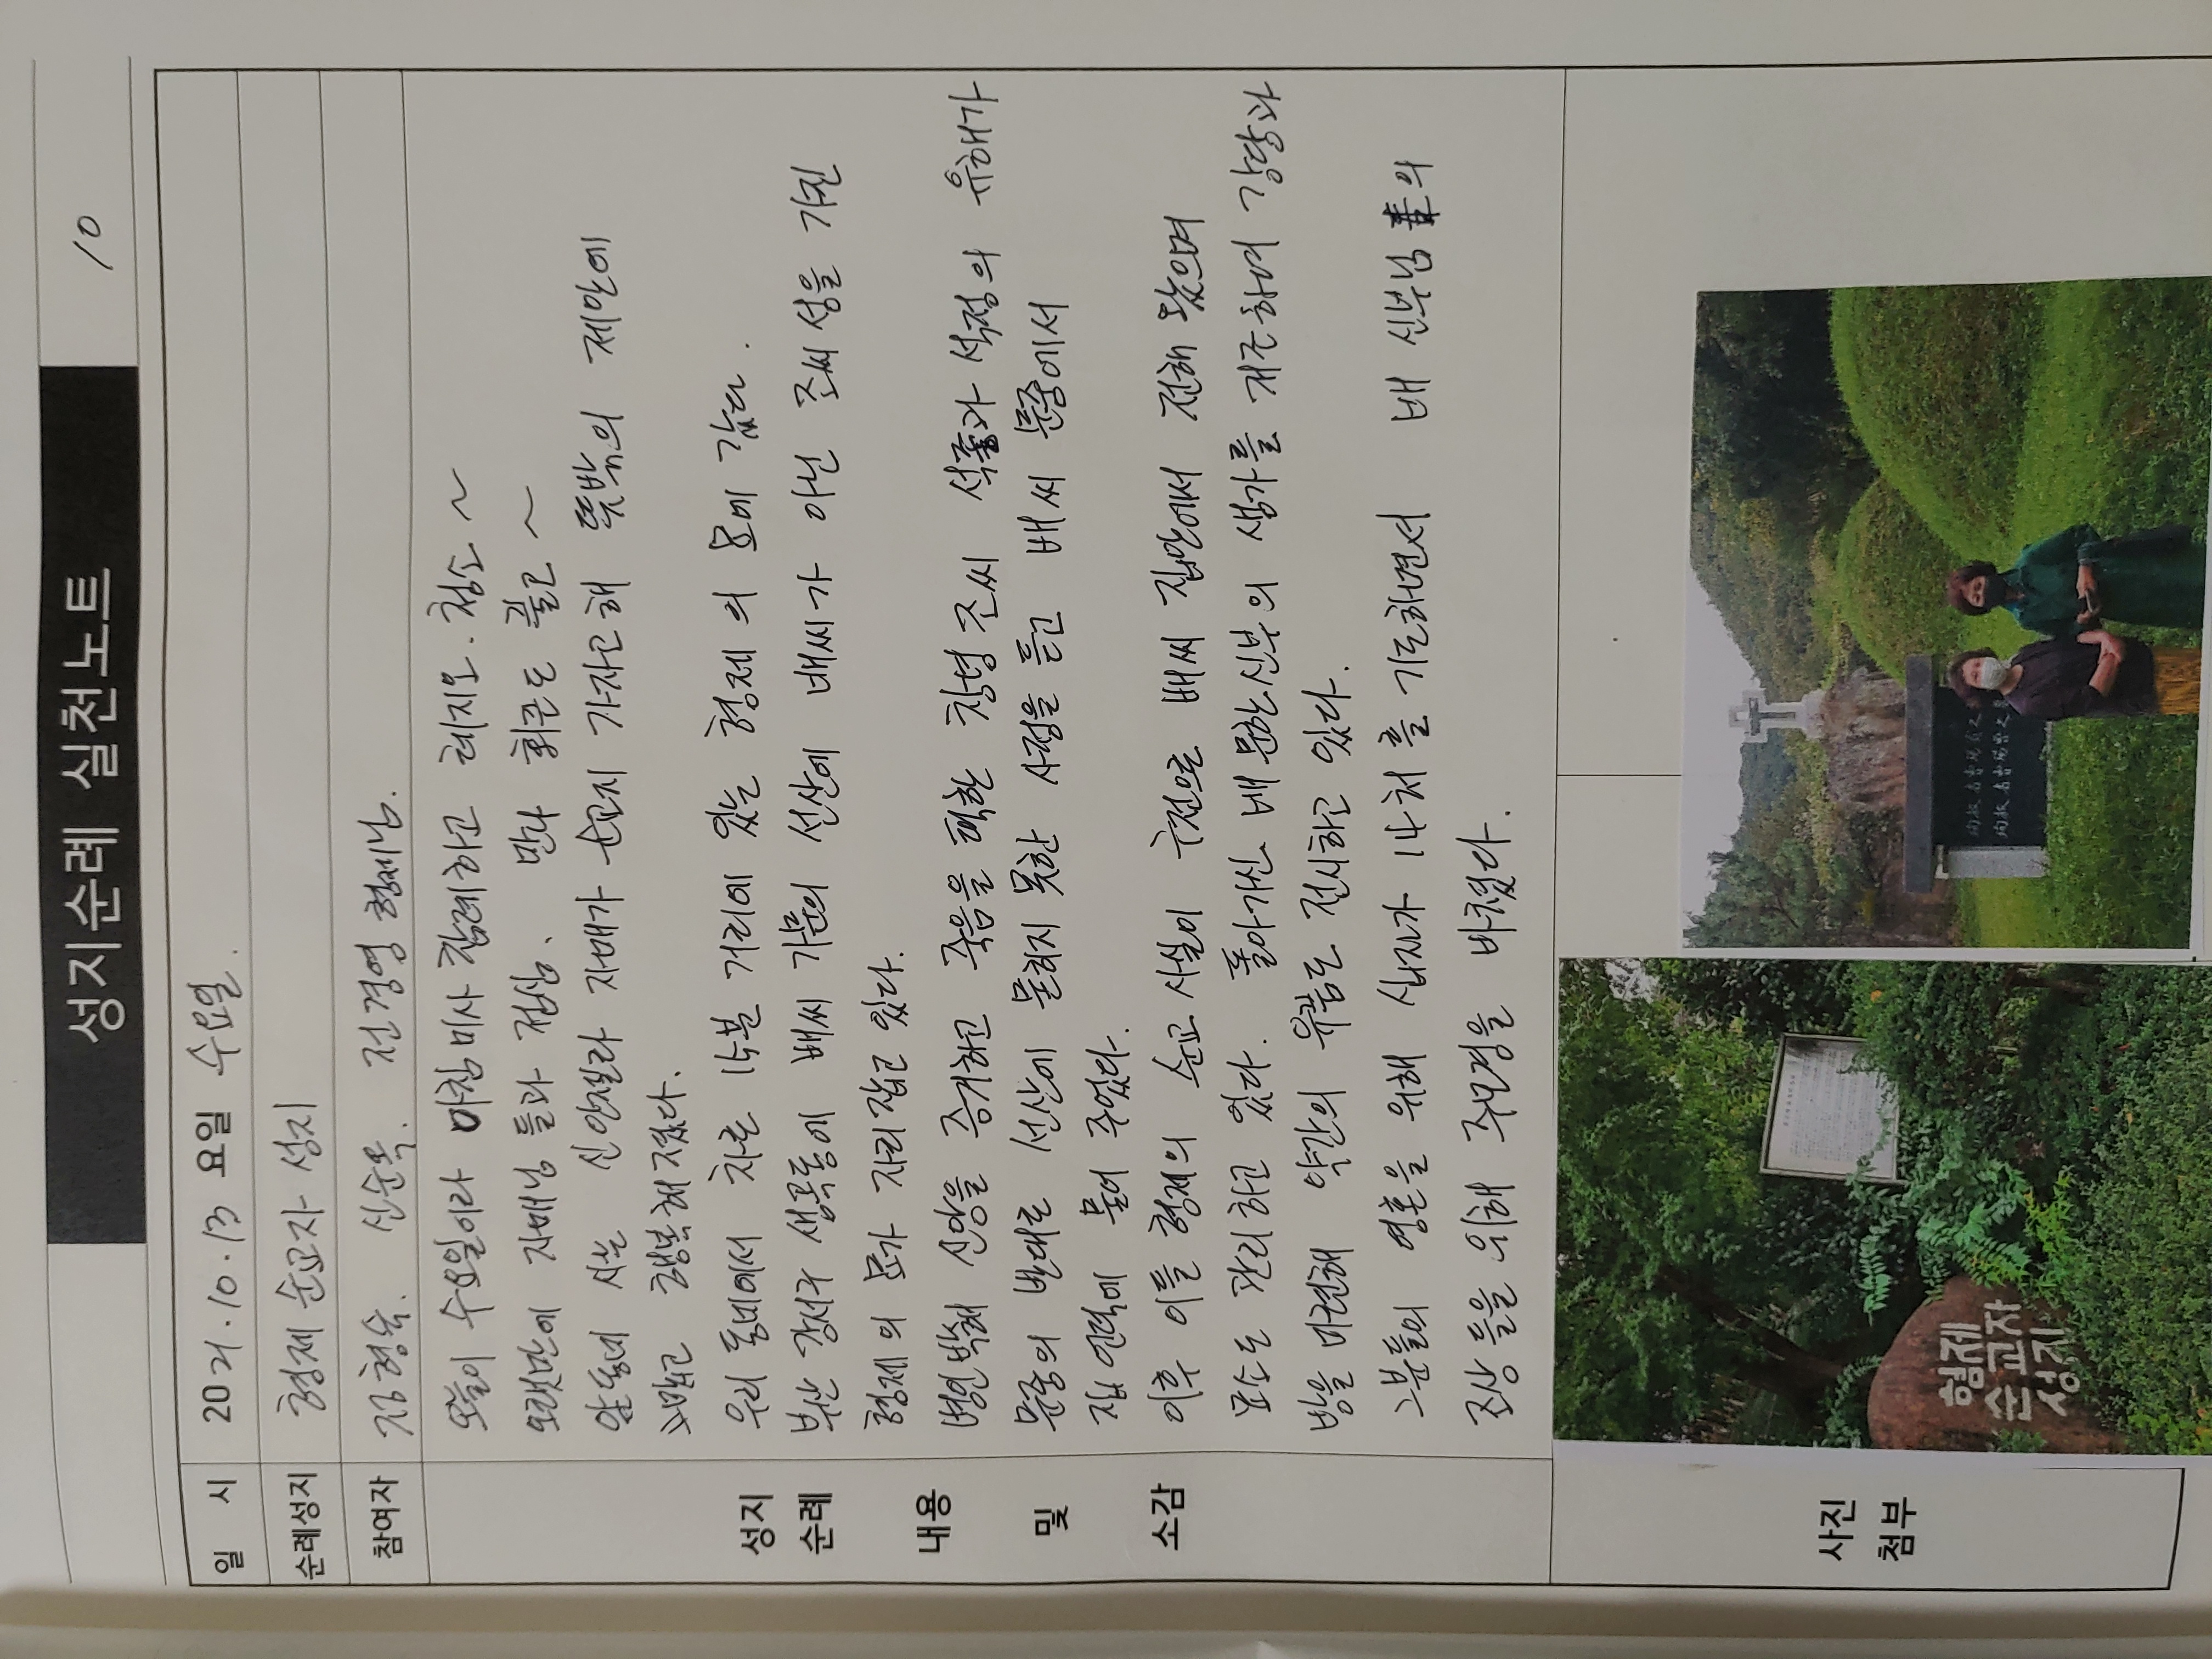 성지순례 실천노트
10
일 시 2021.10.13 요일 수요일.
순례성지 형제 순교자 성지
참여자 장형숙. 신순옥. 전경영 형제님.
성지 순례 내용 및 소감
오늘이 수요일이라 아침미사 참례하고 레지오. 청소 ~
오랫만에 자매님 들과 점심. 만나 회포도 풀고 ~
앞동네 사는 신안젤라 자매가 순교지 가자고해 뜻밖의 제안에
고맙고 행복해졌다.
우리 동네에서 차로 15분 거리에 있는 형제의 묘에 갔다.
부산 강서구 생곡동에 배씨 가문의 선산에 배씨가 아닌 조씨성을 가진
형제의 묘가 자리잡고 있다.
병인박해 신앙을 증거하고 죽음을 택한 창녕조씨 석증과 석정의 유해가
문중의 반대로 선산에 묻히지 못한 사정을 듣고 배씨 문중에서
집 언덕에 묻어 주었다.
이후 이들 형제의 순교 사실이 구전으로 배씨 집안에서 전해 왔으며
묘소도 관리하고 있다. 돌아가신 배문한신부의 생가를 재조하여 강당과
방을 마련해 약간의 유품도 전시하고 있다.
그분들의 영혼을 위해 십자가 14처를 기도하면서 배 신부님의
조상들을 위해 주모경을 바쳤다.
사진
첨부
형제
순교자
성지